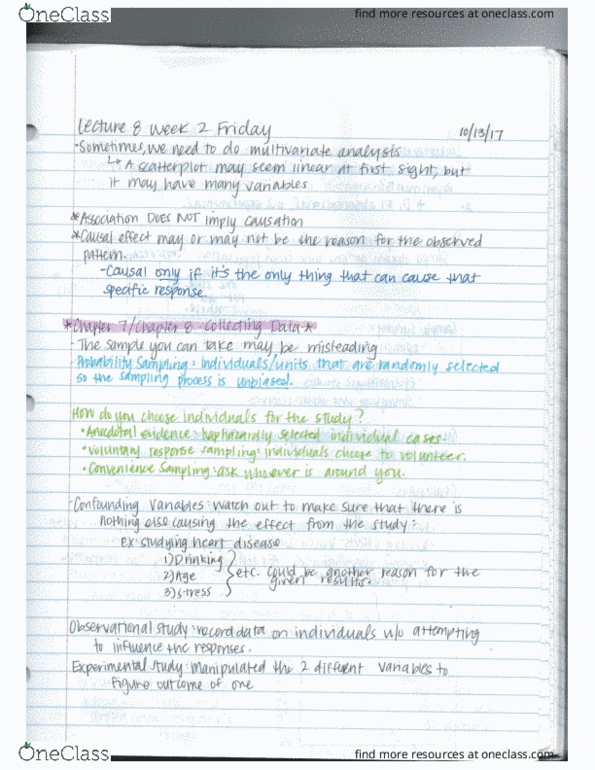 OneClass
find more resources at oneclass.com
Lecture 8 Week 2 Friday 10/13/17
-Sometimes, we need to do multivariate analysis
↳ A scatterplot may seem linear at first sight, but
it may have many variables
*Association DOES NOT imply causation
*Causal effect may or may not be the reason for the observed
pattern.
-Causal only if it's the only thing that can cause that
specific response.
*Chapter 7/Chapter 8 Collecting Data*
-The sample you can take may be misleading
-Probability Sampling: individuals/units that are randomly selected
so the sampling process is unbiased.
How do you choose individuals for the study?
•Anecdotal evidence: haphazardly selected individual cases
•Voluntary response sampling: individuals choose to volunteer.
•Convenience Sampling: ask whoever is around you.
-Confounding Variables: watch out to make sure that there is
nothing else causing the effect from the study:
ex: studying heart disease
1) Drinking
2) Age
3) Stress
etc. could be another reason for the
given results.
Observational study: record data on individuals w/o attempting
to influence the responses.
Experimental study: manipulated the 2 different variables to
figure outcome of one
OneClass
find more resources at oneclass.com